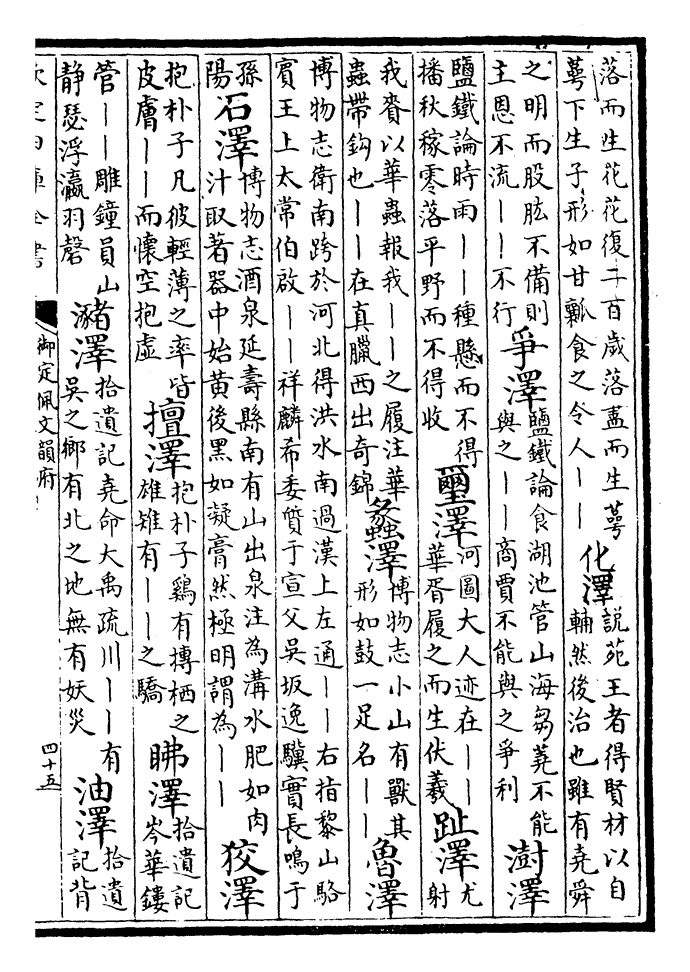 落而生花花復二百歲落盡而生萼
萼下生子形如甘瓤食之令人丨丨
化澤
說苑王者得賢材以自
輔然後治也雖有堯舜
之明而股肱不備則
主恩不流丨丨不行
爭澤
鹽鐵論食湖池管山海芻蕘不能
與之丨丨商賈不能與之爭利
澍澤
鹽鐵論時雨丨丨種懸而不得
播秋稼零落平野而不得收
壐澤
河圖大人迹在丨丨
華胥履之而生伏羲
趾澤
尤
射
我賚以華蟲報我丨丨之履注華
蟲帶鈎也丨丨在真臘西出奇錦
螽澤
博物志小山有獸其
形如鼓一足名丨丨
魯澤
博物志衛南跨於河北得洪水南過漢上左通丨丨右指黎山駱
賓王上太常伯啟丨丨祥麟希委質于宣父吳坂逸驥實長鳴于
孫
陽
石澤
博物志酒泉延壽縣南有山出泉注為溝水肥如肉
汁取著器中始黄後黑如凝膏然極明謂為丨丨
狡澤
抱朴子凡彼輕薄之率皆
皮膚丨丨而懷空抱虛
擅澤
抱朴子鷄有摶栖之
雄雉有丨丨之驕
胇澤
拾遺記
岑華鏤
管丨丨雕鐘員山
静瑟浮瀛羽磬
瀦澤
拾遺記堯命大禹疏川丨丨有
吳之鄉有北之地無有妖災
油澤
拾遺
記背
欽定四庫全書
御定佩文韻府
四十五